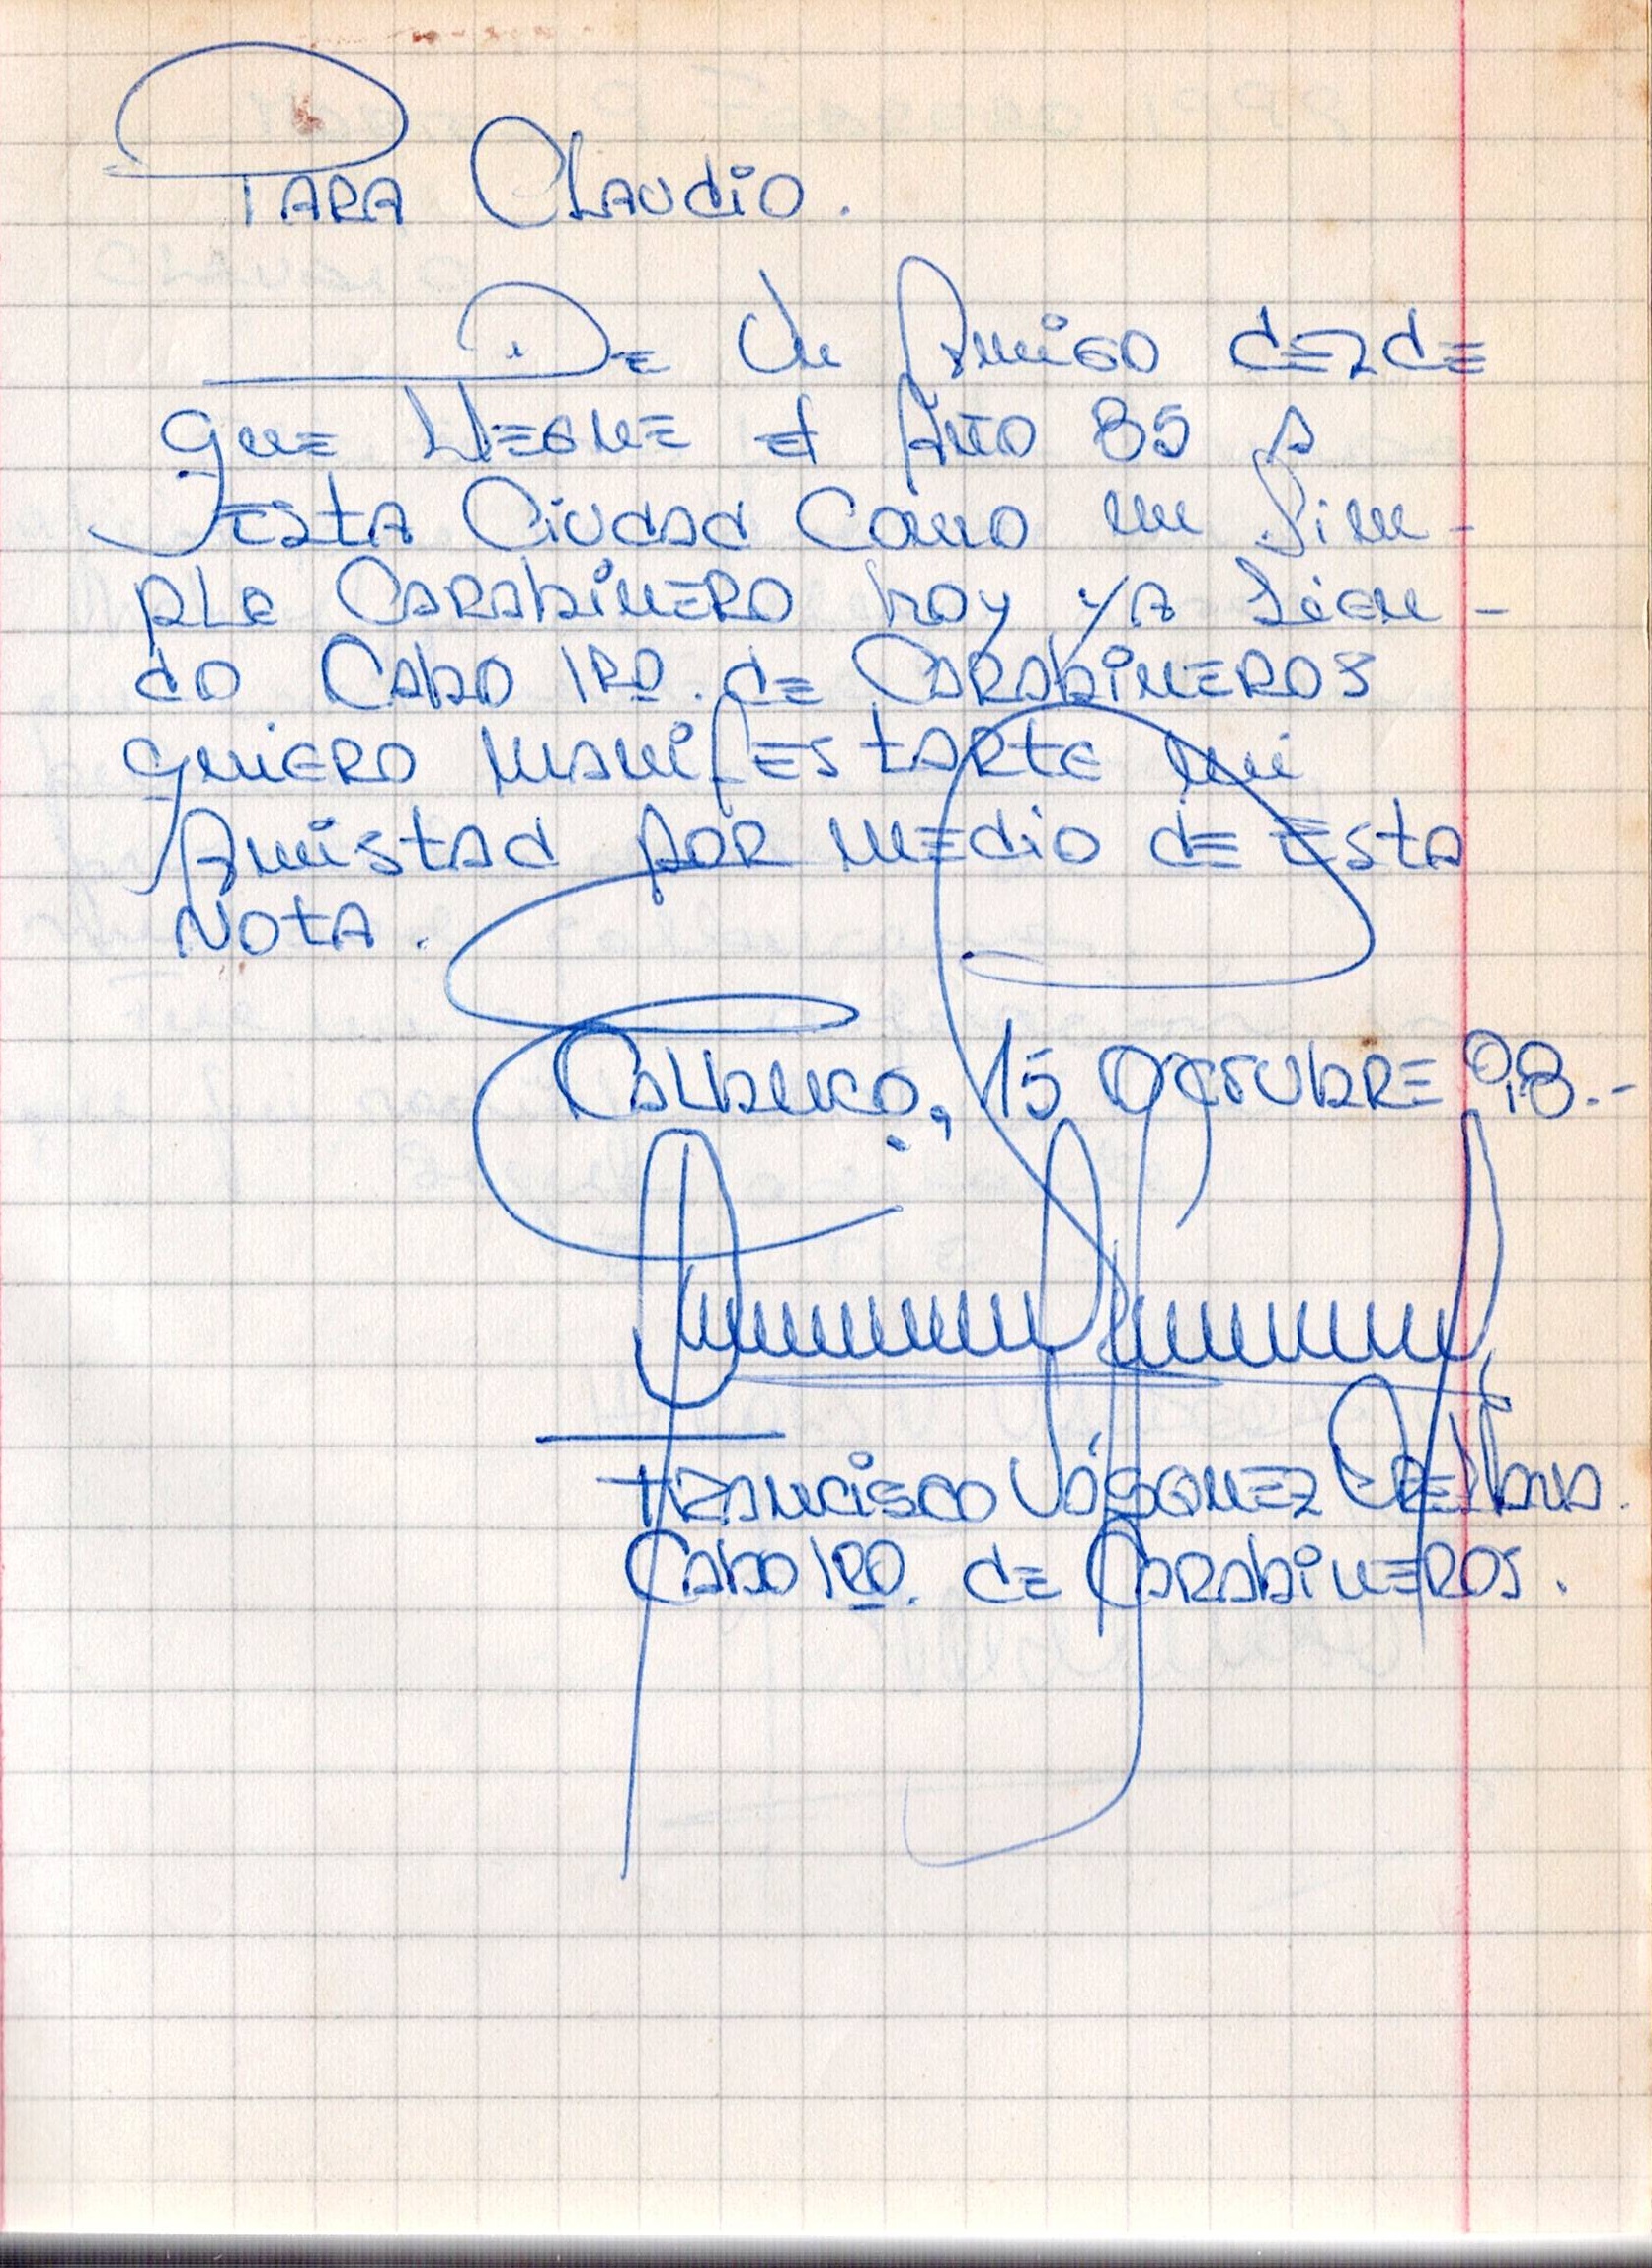 Para Claudio.
De un Amigo dezde
que llegue el Año 85 a
esta Ciudad Como un Sim-
ple Carabinero hoy ya Sien-
do Cabo 1ro. de Carabineros
quiero manifestarte mi
Amistad por medio de esta
Nota.
Calbuco, 15 Octubre 98.-
Francisco Vásquez Orellana.
Cabo 1ro. de Carabineros.